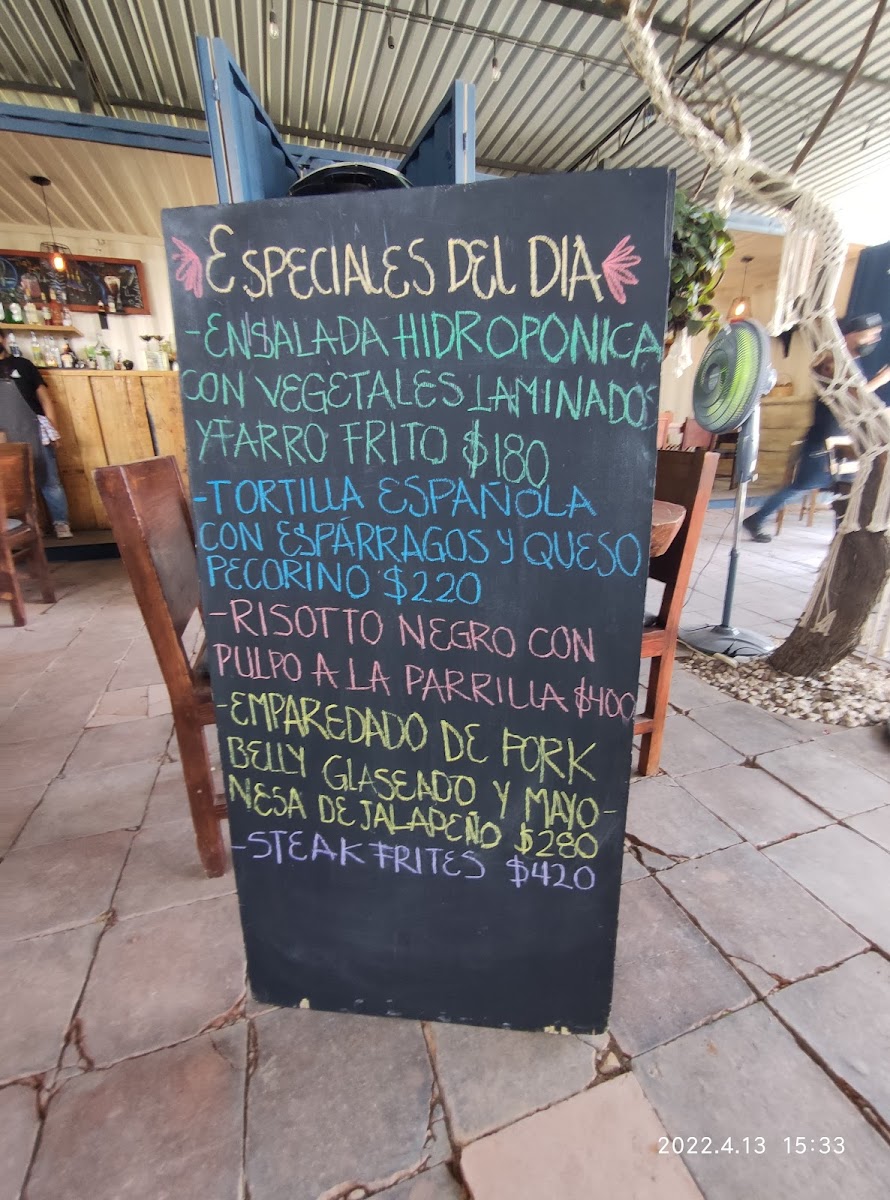 ESPECIALES DEL DIA
-ENSALADA HIDROPONICA
CON VEGETALES LAMINADOS
Y FARRO FRITO $180
-TORTILLA ESPAÑOLA
CON ESPÁRRAGOS Y QUESO
PECORINO $220
-RISOTTO NEGRO CON
PULPO A LA PARRILLA $400
-EMPAREDADO DE PORK
BELLY GLASEADO Y MAYO-
NESA DE JALAPEÑO $280
-STEAK FRITES $420
2022.4.13 15:33